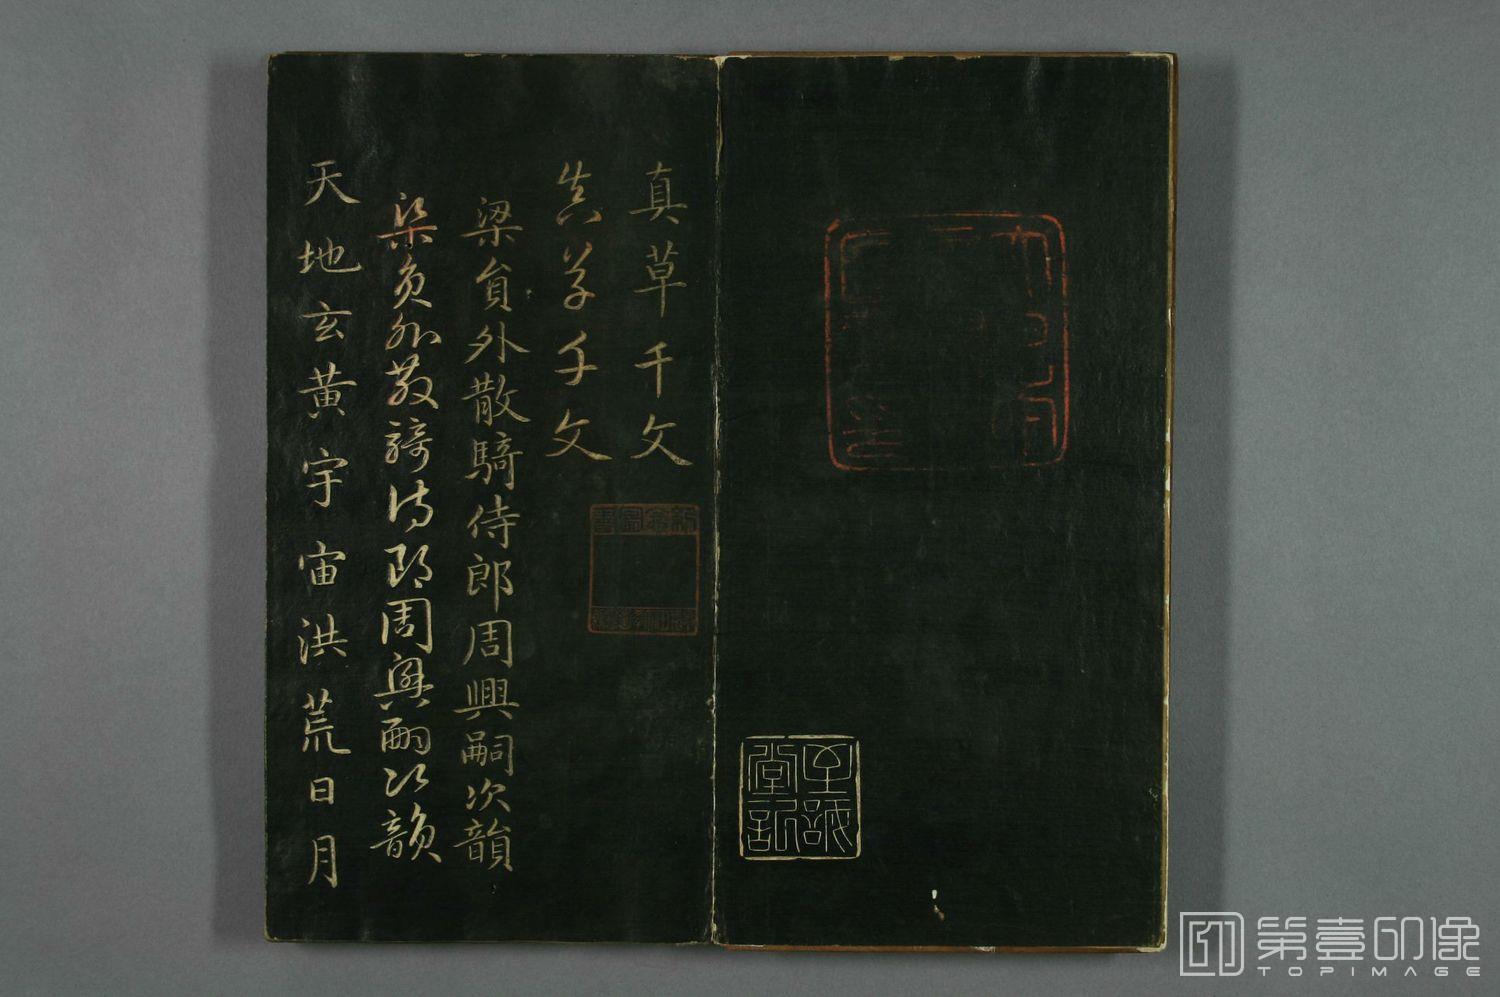 至誠
堂記
真草千文
真草千文
梁員外散騎侍郎周興嗣次韻
梁員外散騎侍郎周興嗣次韻
天地玄黃宇宙洪荒日月
第壹印像
TOPIMAGE